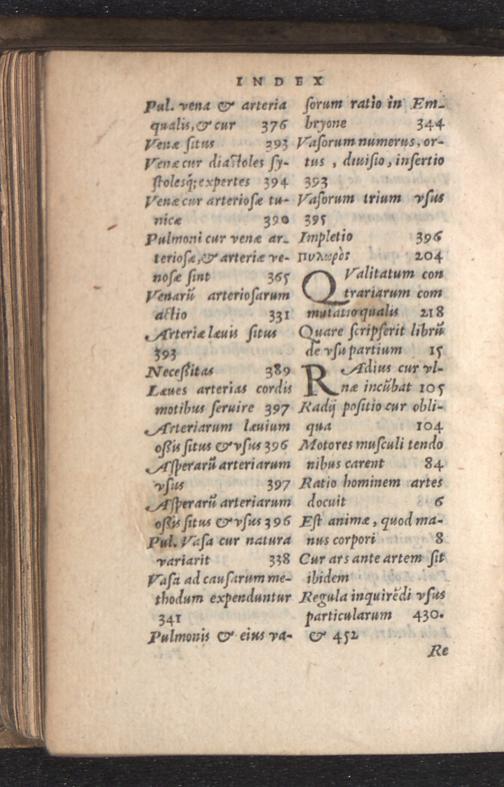 INDEX
Pul. vena & arteria
qualis, & cur 376
Venæ situs 393
Venæ cur diastoles sy-
stolesq; expertes 394
Venæ cur arteriosæ tu-
nicæ 390
Pulmoni cur venæ ar-
teriosæ, & arteriæ ve-
nosæ sint 365
Venarũ arteriosarum
actio 331
Arteriæ læuis situs
393
Necessitas 389
Læues arterias cordis
motibus seruire 397
Arteriarum læuium
ossis situs & vsus 396
Asperarũ arteriarum
vsus 397
Asperarũ arteriarum
ossis situs & vsus 396
Pul. Vasa cur natura
variarit 338
Vasa ad causarum me-
thodum expenduntur
341
Pulmonis & eius va-
sorum ratio in Em-
bryone 344
Vasorum numerus, or-
tus, diuisio, insertio
393
Vasorum trium vsus
395
Impletio 396
πυλωρὸς 204
QValitatum con
trariarum com
mutatio qualis 218
Quare scripserit librũ
de vsu partium 15
RAdius cur vl-
næ incũbat 105
Radij positio cur obli-
qua 104
Motores musculi tendo
nibus carent 84
Ratio hominem artes
docuit 6
Est animæ, quod ma-
nus corpori 8
Cur ars ante artem sit
ibidem
Regula inquirẽdi vsus
particularum 430.
& 452
Re